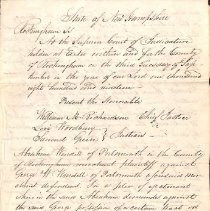 State of New Hampshire
Rockingham Ss
At the Superior Court of Judicature
holden at Exeter within and for the County
of Rockingham on the third Tuesday of Sep
tember in the year of our Lord one thousand
eight hundred and nineteen
Present the Honorable
William M. Richardson Chief Justice
Levi Woodbury
Samuel Green } Justices
Abraham Wendell of Portsmouth in the County
of Rockingham merchant plaintiff against
George W. Wendell of Portsmouth aforesaid
In a plea of
the said Abraham demanded against
the said George